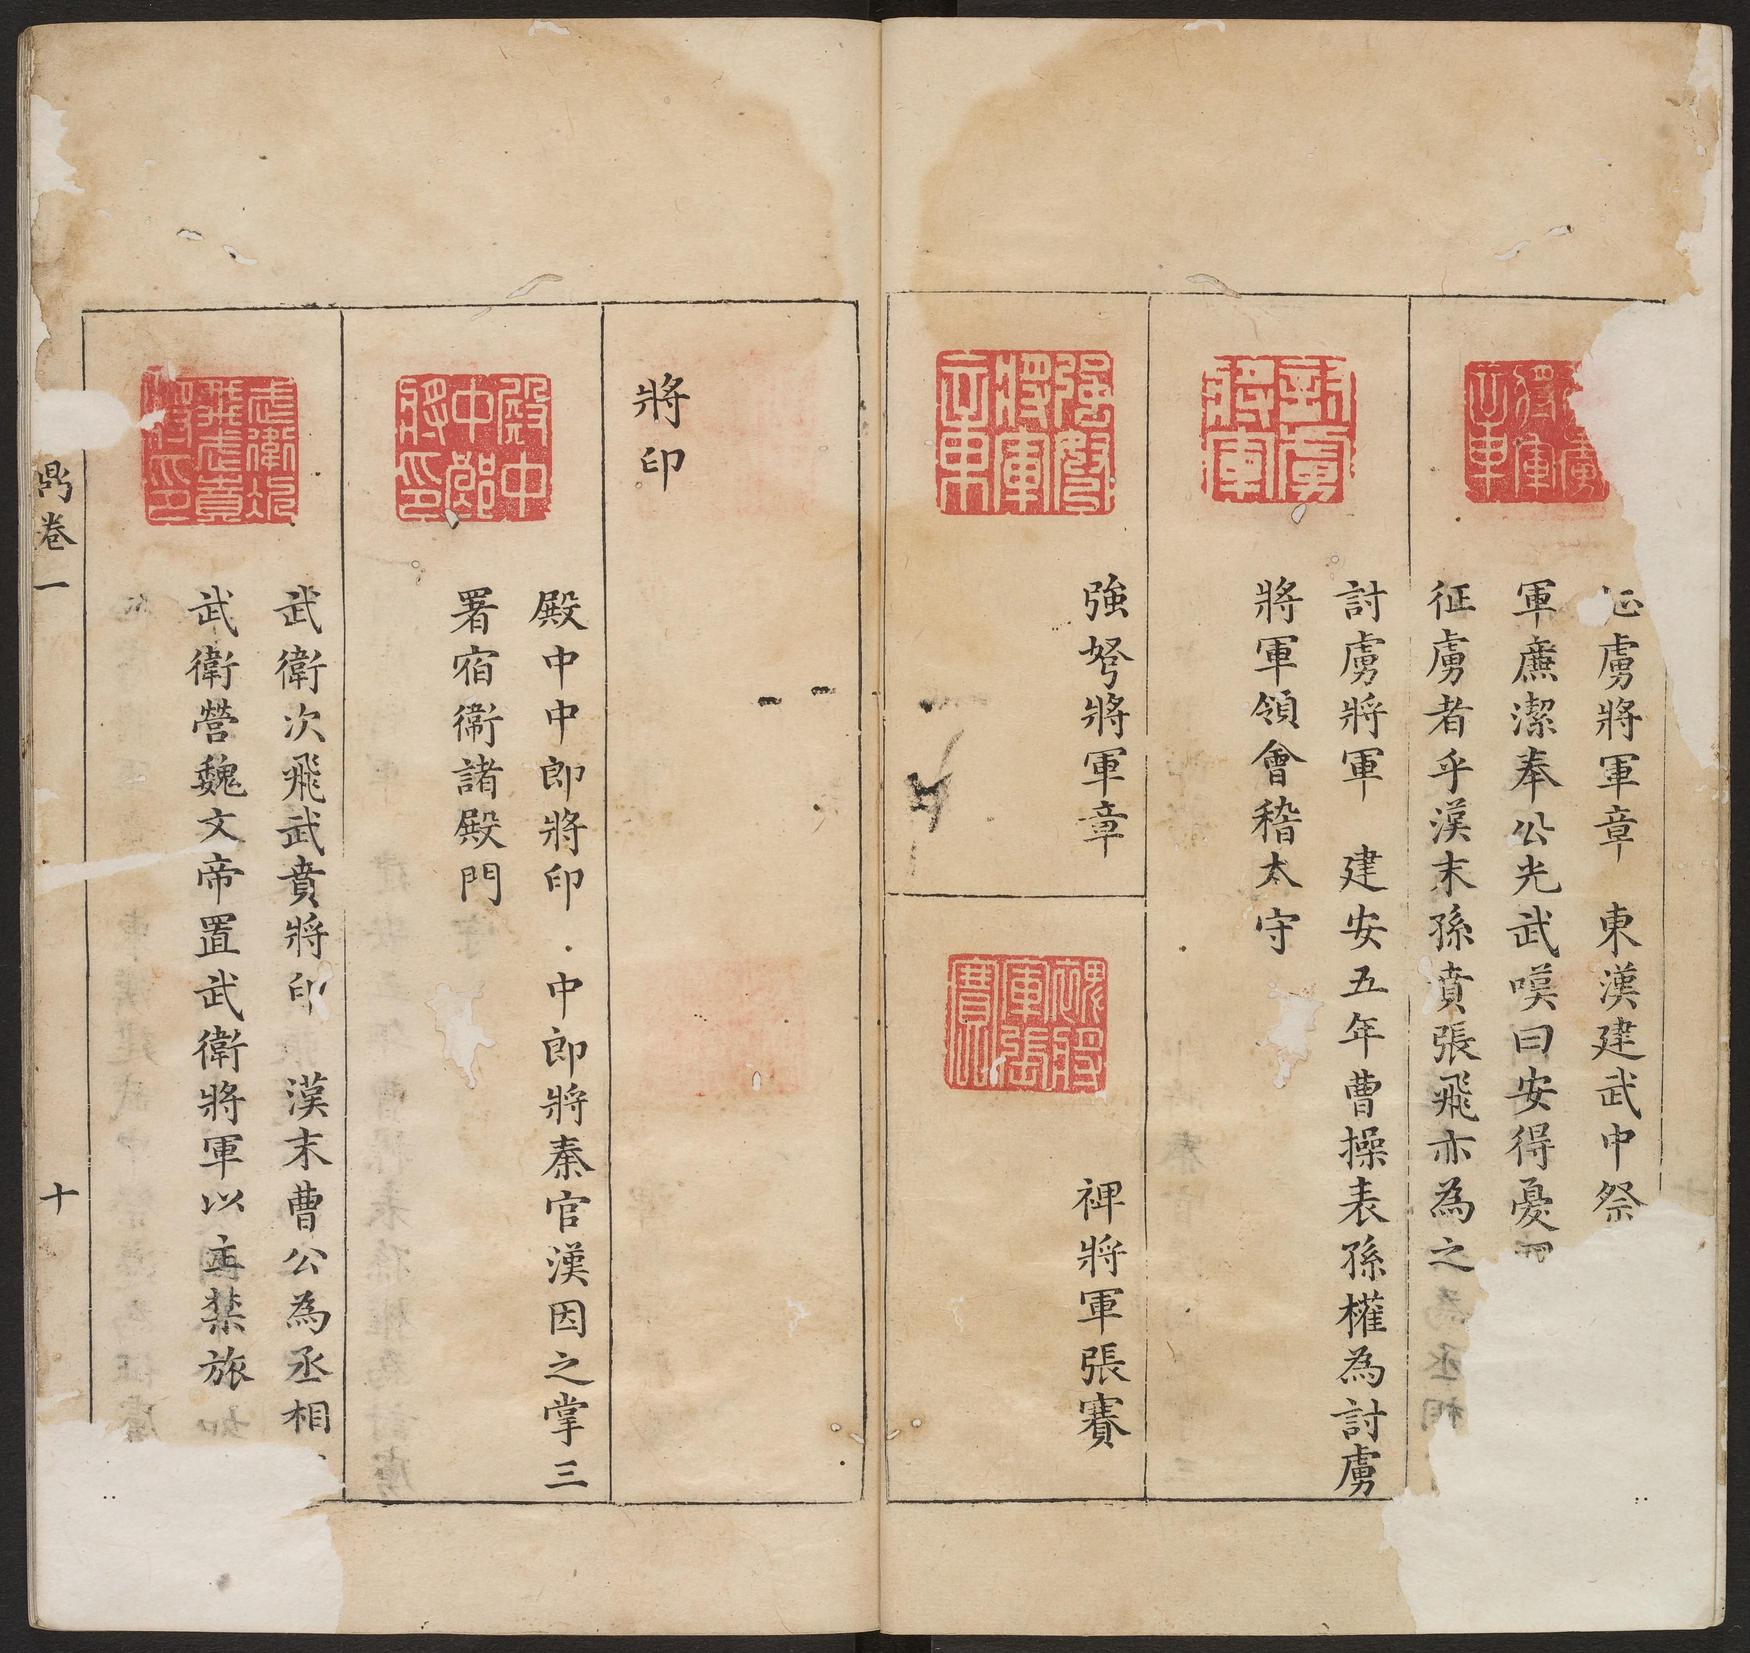 虜將軍章　東漢建武中祭
軍廉潔奉公光武嘆曰安得憂
征虜者乎漢末孫賁張飛亦為之
討虜將軍　建安五年曹操表孫權為討虜
將軍領會稽太守
強弩將軍章
裨將軍張賽
將印
殿中中郎將印　中郎將秦官漢因之掌三
署宿衞諸殿門
武衛次飛武賁將印　漢末曹公為丞相
武衛營魏文帝置武衛將軍以主禁旅
卷一
十